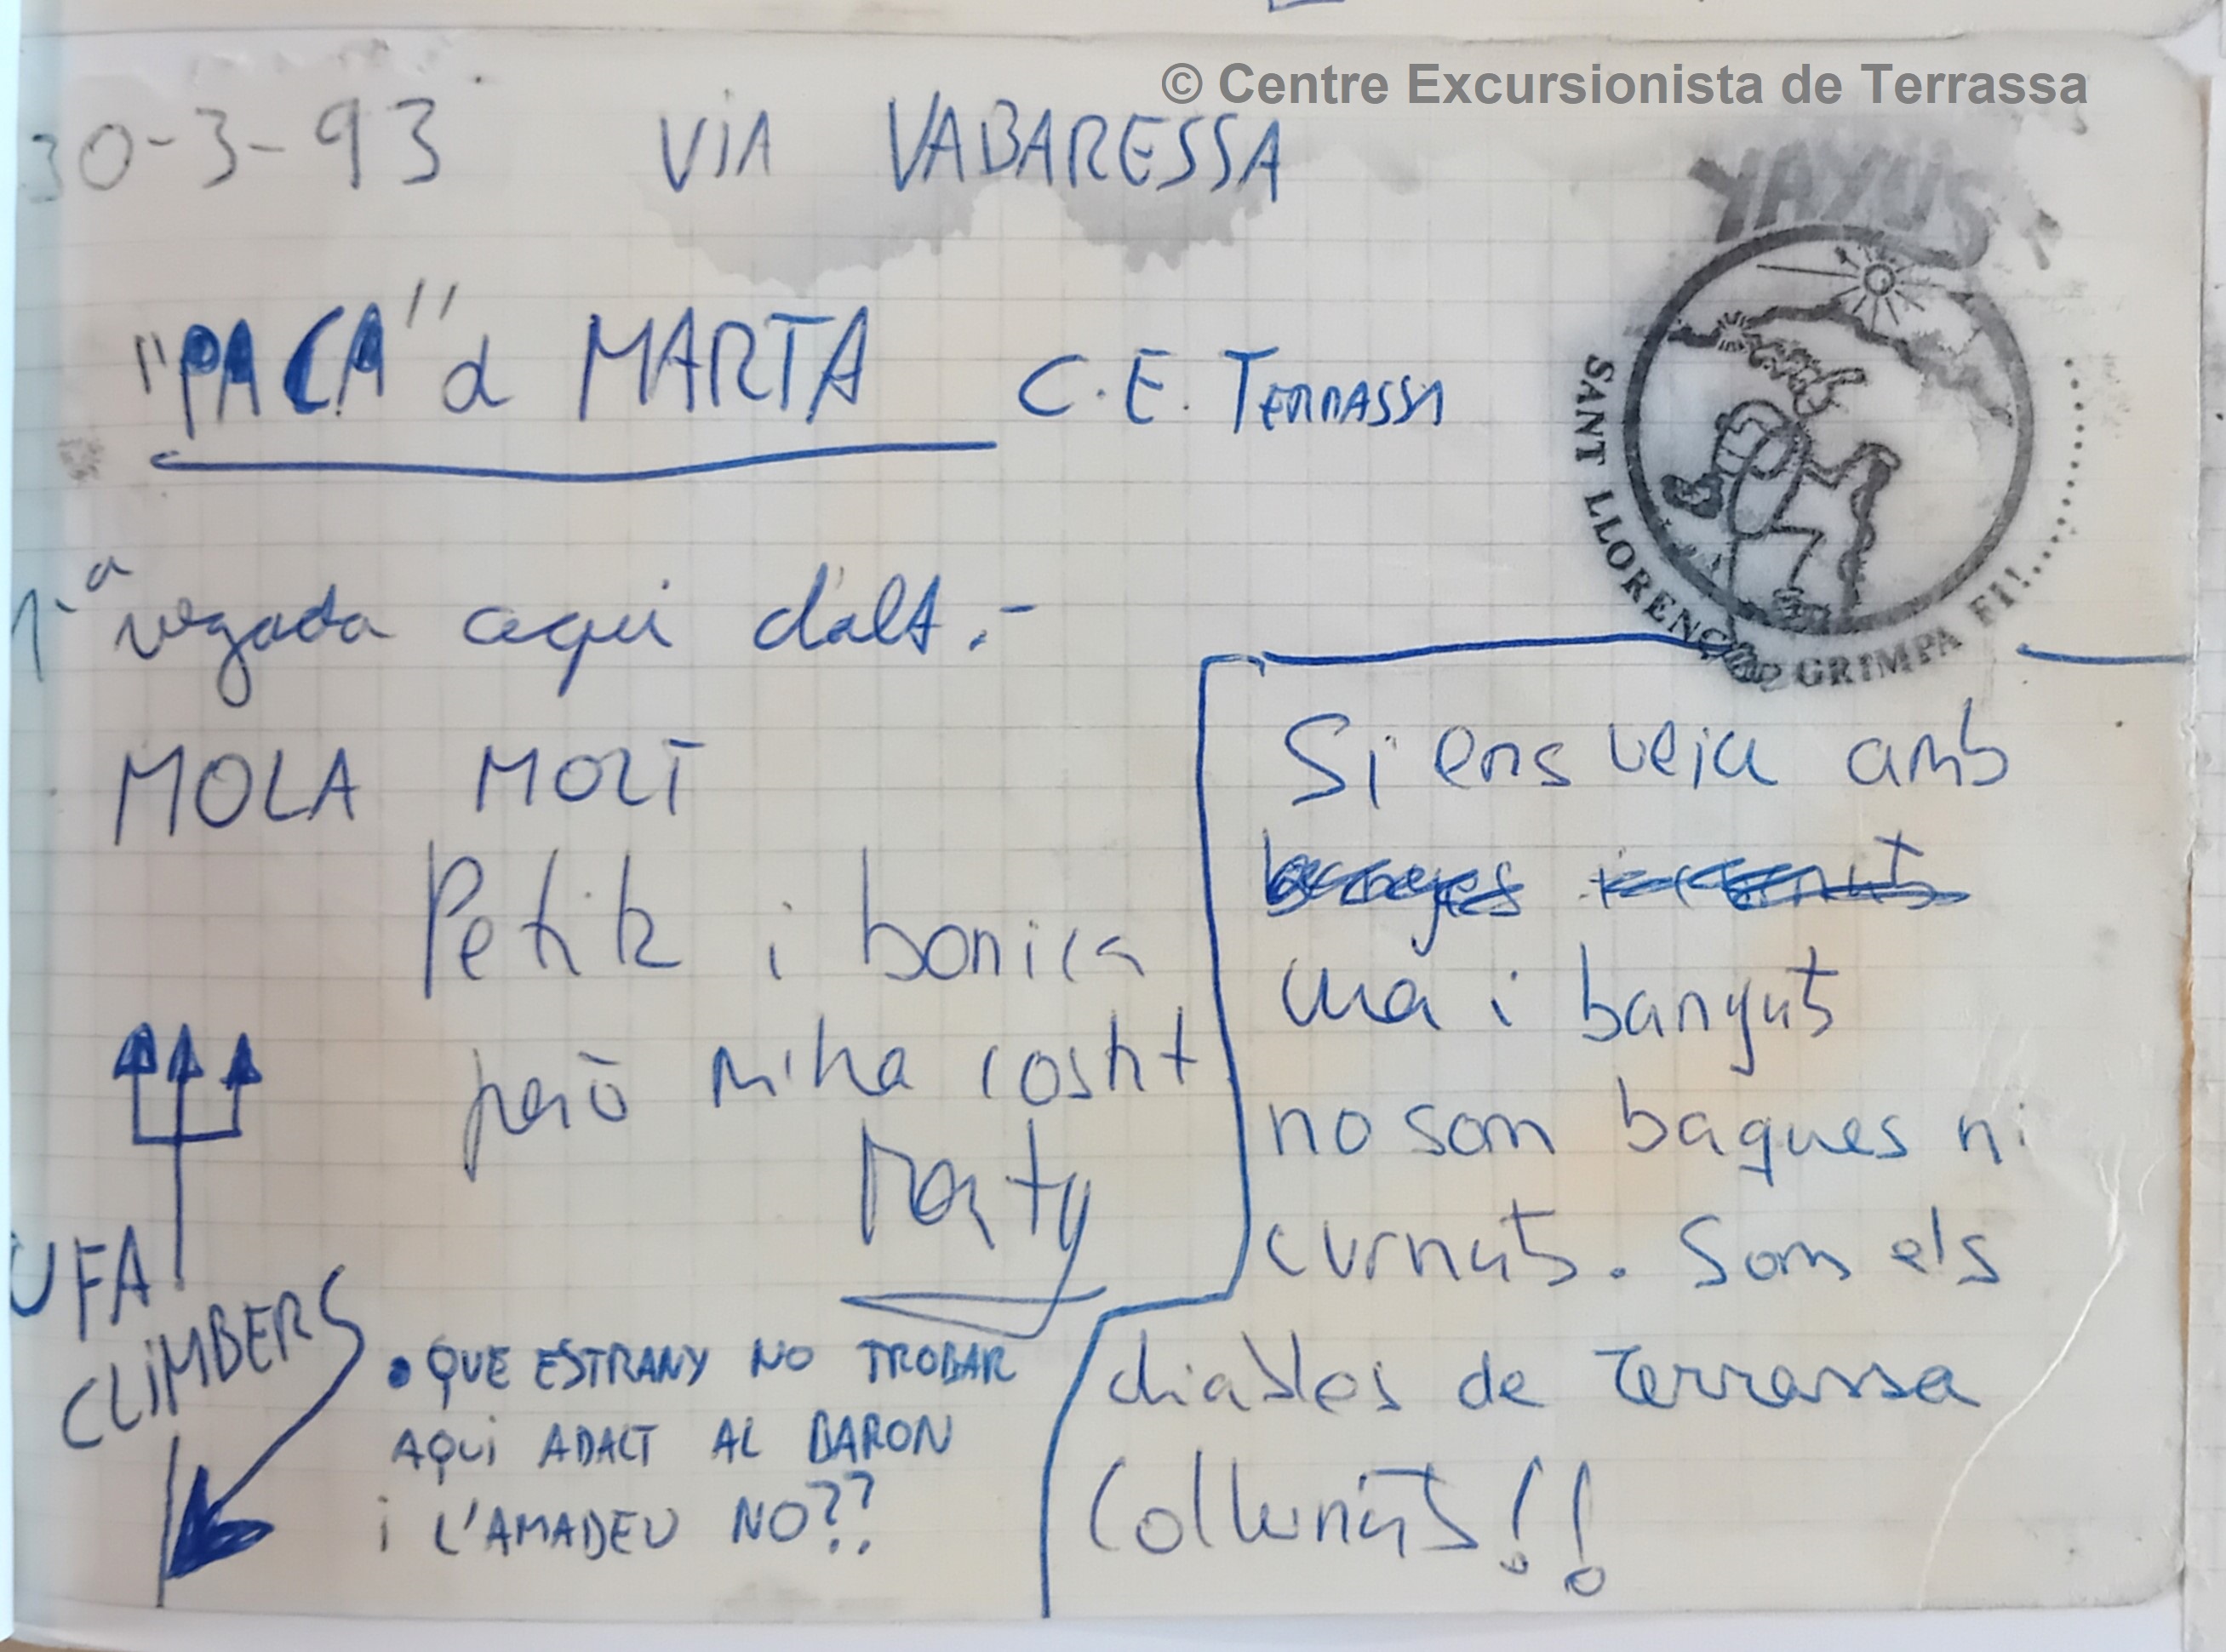 © Centre Excursionista de Terrassa
30-3-93 ViA VABARESSA
YAYUS
"PACA" d MARTA C.E. TERRASSA
SANT LLORENÇ GRIMPA FI!..............
1.ª vegada aqui dalt.-
MOLA MOLT
Petita i bonica
però m'ha costat
Marty
UFA
CLiMBERS
• QUE ESTRANY NO TROBAR
AQUi ADALT AL BARON
i L'AMADEU NO??
Si ens veia amb
cua i banyuts
no som baques ni
curnuts. Som els
diables de Terrassa
Collunuts!!